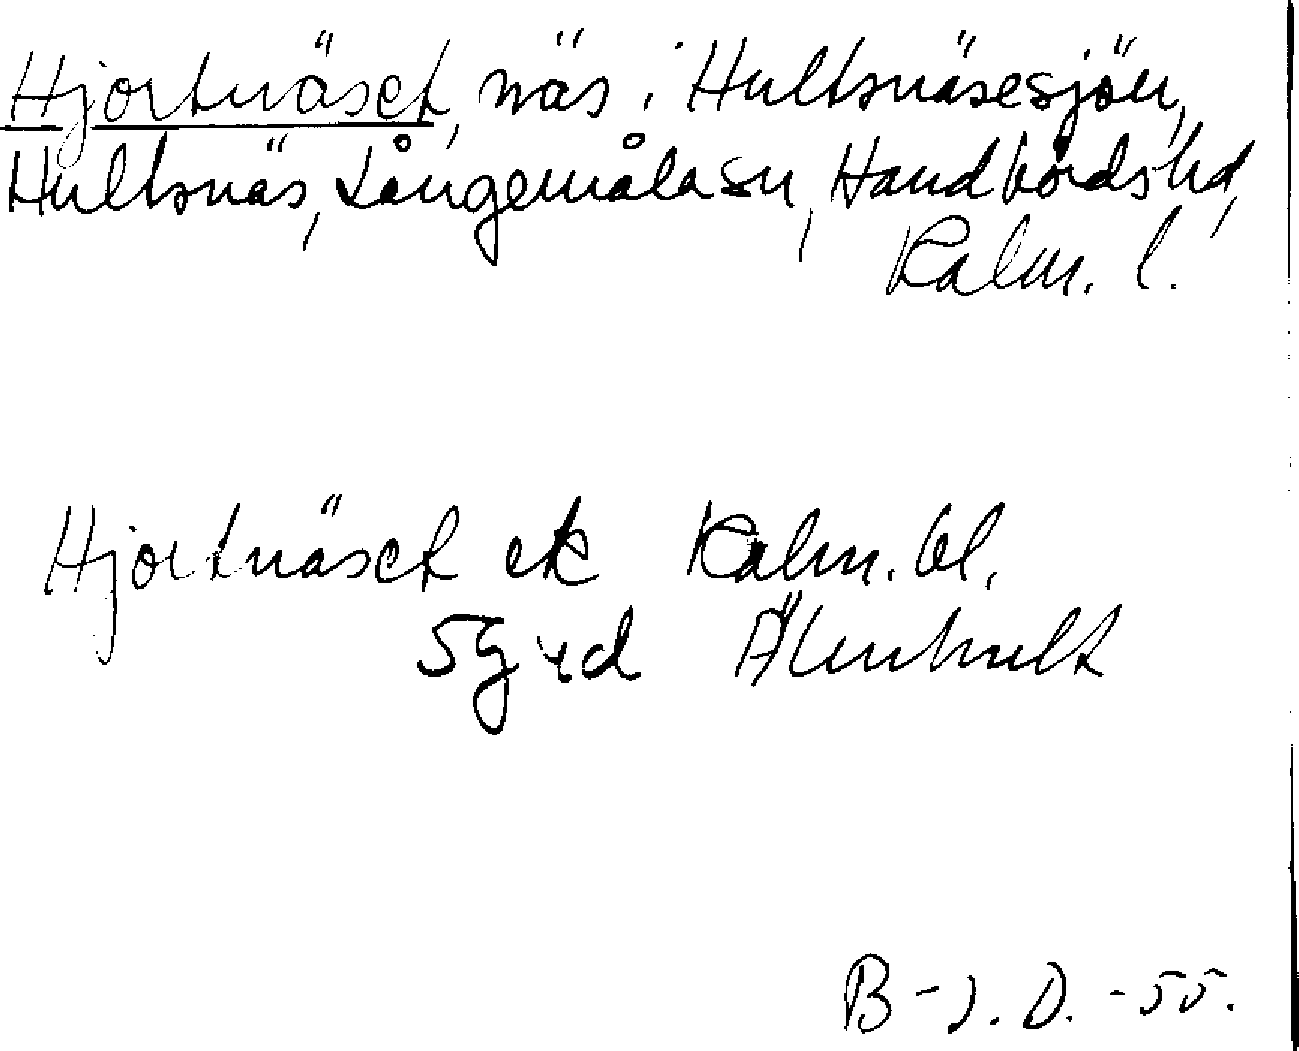 Hjortnäset, näs i Hultsnäsesjön,
Hultsnäs, Långemåla sn, Handbörds hd,
Kalm. l.
Hjortnäset ek Kalm. bl.
5g Älmhult
B-J. D. -55.